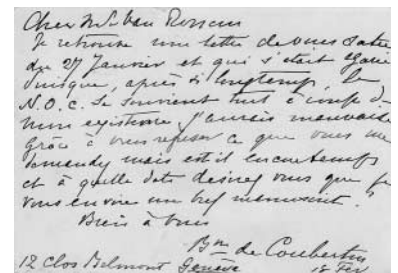 Cher M. Van Rossem
Je retrouve une lettre de vous datée
du 27 Janvier et qui s'était égarée
Puisque, après si longtemps, le
N.O.C. se souvient tout à coup de
mon existence j'aurais mauvaise
grâce à vous refuser ce que vous me
demandez mais est il encore temps
et à quelle date désirez vous que je
vous envoie un bref manuscrit?
Bien à vous
Bon de Coubertin
12 Clos Belmont Genève 18 Fev